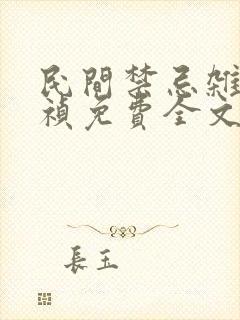 民間禁忌雜
禎免費全文
長玉